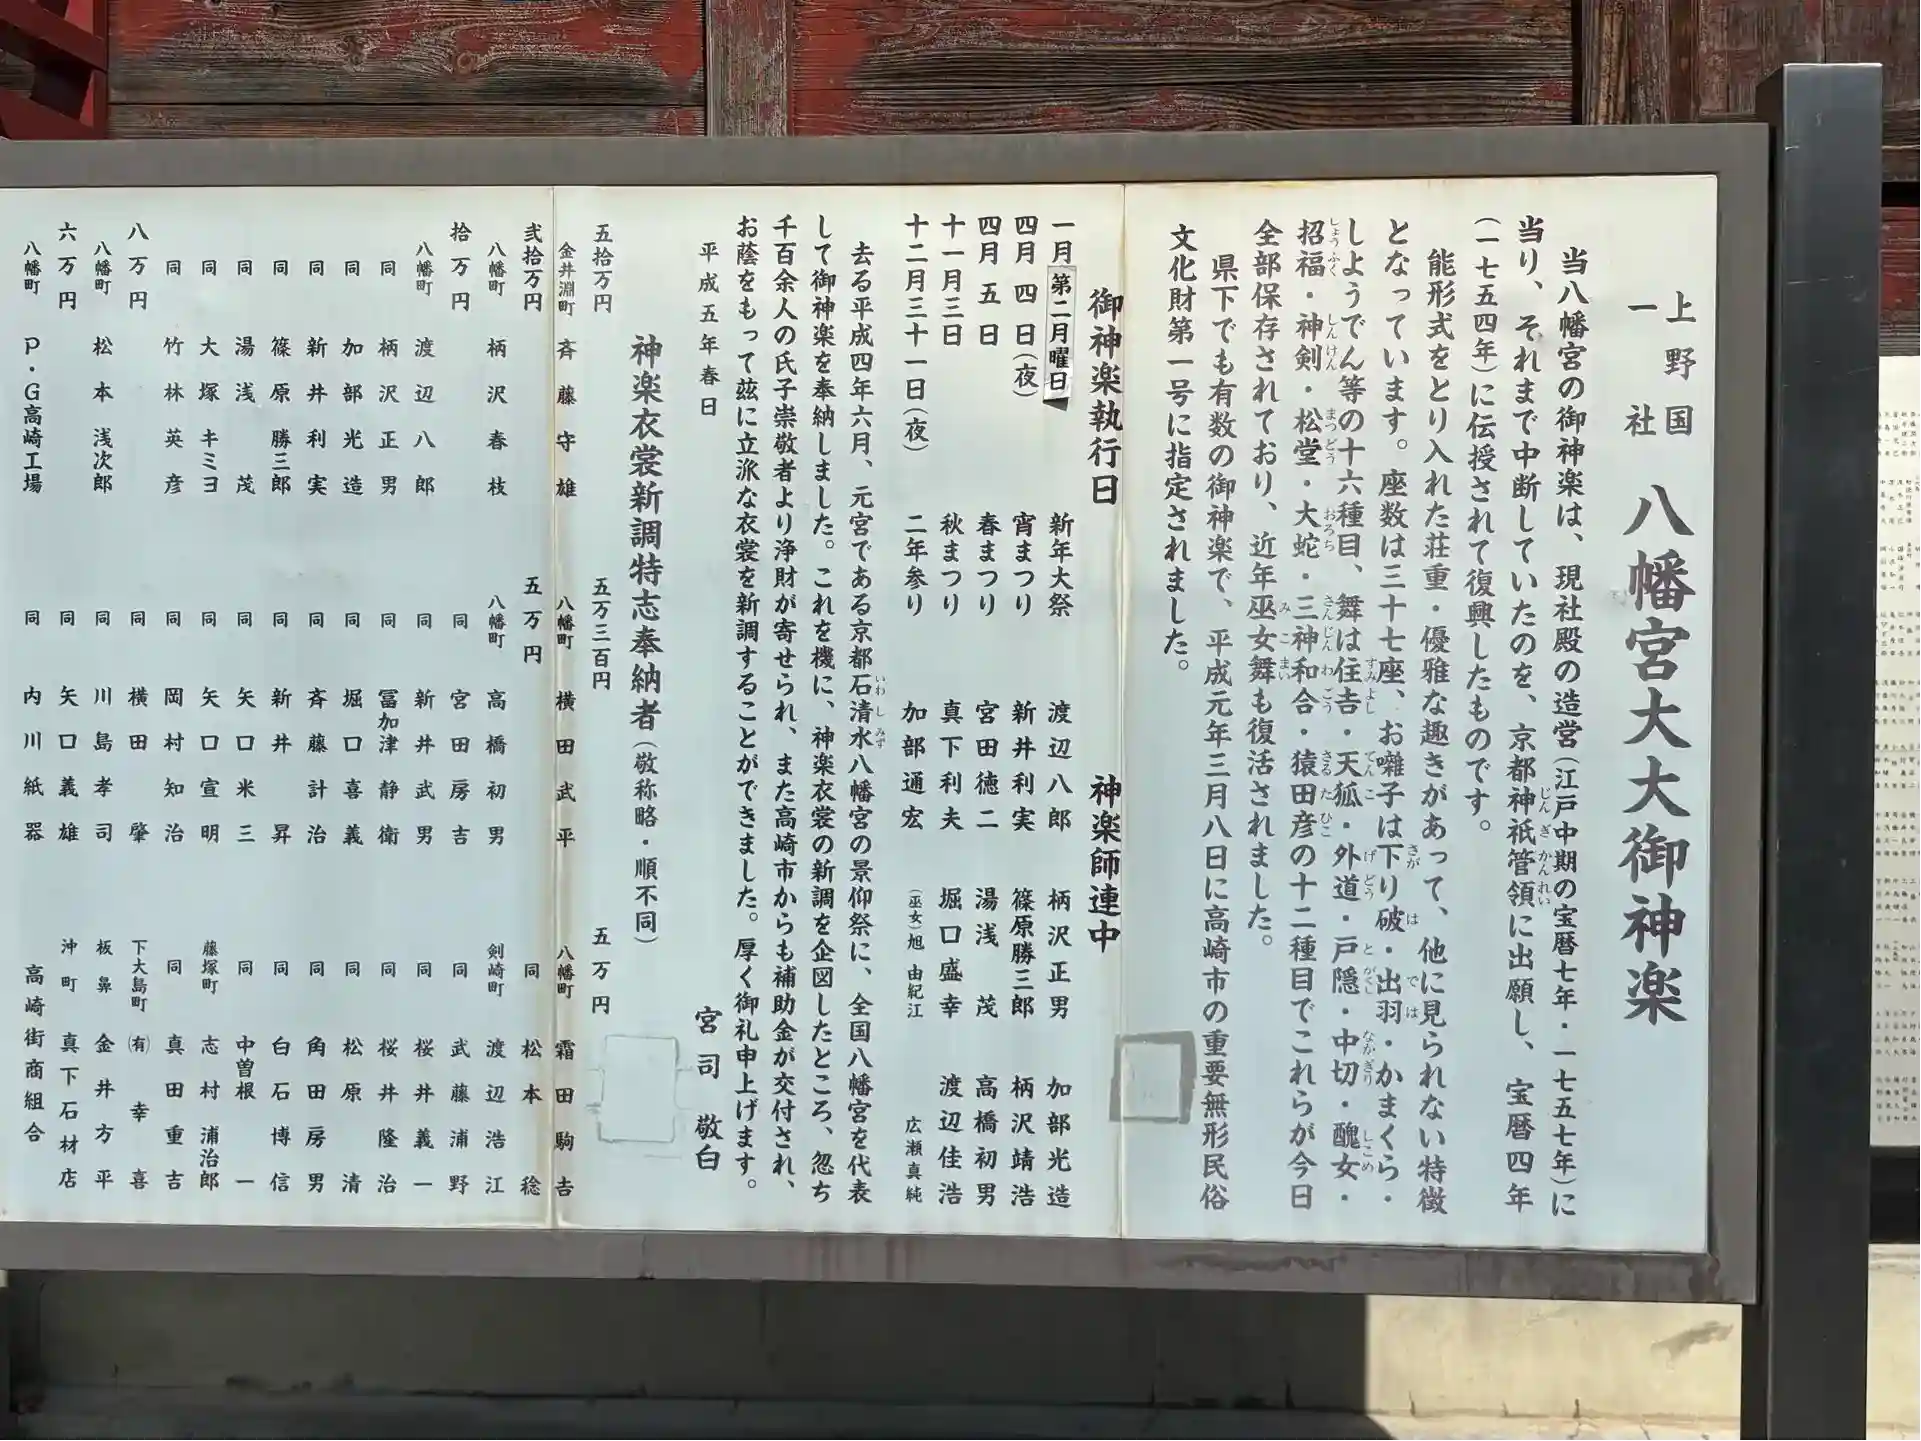 上野国
一社
八幡宮大大御神楽
当八幡宮の御神楽は、現社殿の造営(江戸中期の宝暦七年・一七五七年)に
当り、それまで中断していたのを、京都神祇管領に出願し、宝暦四年
(一七五四年)に伝授されて復興したものです。
能形式をとり入れた荘重・優雅な趣きがあって、他に見られない特徴
となっています。座数は三十七座、お囃子は下り破・出羽・かまくら・
しようでん等の十六種目、舞は住吉・天狐・外道・戸隠・中切・醜女・
招福・神剣・松堂・大蛇・三神和合・猿田彦の十二種目でこれらが今日
全部保存されており、近年巫女舞も復活されました。
県下でも有数の御神楽で、平成元年三月八日に高崎市の重要無形民俗
文化財第一号に指定されました。
御神楽執行日 神楽師連中
一月第二月曜日 新年大祭 渡辺八郎 柄沢正男 加部光造
四月四日(夜) 宵まつり 新井利実 篠原勝三郎 柄沢靖浩
四月五日 春まつり 宮田徳二 湯浅茂 高橋初男
十一月三日 秋まつり 真下利夫 堀口盛幸 渡辺佳浩
十二月三十一日(夜) 二年参り 加部通宏 (巫女)旭由紀江 広瀬真純
去る平成四年六月、元宮である京都石清水八幡宮の景仰祭に、全国八幡宮を代表
して御神楽を奉納しました。これを機に、神楽衣裳の新調を企図したところ、忽ち
千百余人の氏子崇敬者より浄財が寄せられ、また高崎市からも補助金が交付され、
お蔭をもって玆に立派な衣裳を新調することができました。厚く御礼申上げます。
平成五年春日 宮司 敬白
神楽衣裳新調特志奉納者(敬称略・順不同)
五拾万円 五万三百円 五万円
金井淵町 斉藤守雄 八幡町 横田武平 八幡町 霜田駒吉
弐拾万円 五万円 同 松本稔
八幡町 柄沢春枝 八幡町 高橋初男 剣崎町 渡辺浩江
拾万円 同 宮田房吉 同 武藤浦野
八幡町 渡辺八郎 同 新井武男 同 桜井義一
同 柄沢正男 同 冨加津静衛 同 桜井隆治
同 加部光造 同 堀口喜義 同 松原清
同 新井利実 同 斉藤計治 同 角田房男
同 篠原勝三郎 同 新井昇 同 白石博信
同 湯浅茂 同 矢口米三 同 中曽根一
同 大塚キミヨ 同 矢口宣明 藤塚町 志村浦治郎
同 竹林英彦 同 岡村知治 同 真田重吉
八万円 同 横田肇 下大島町 ㈲幸喜
八幡町 松本浅次郎 同 川島孝司 板鼻 金井方平
六万円 同 矢口義雄 沖町 真下石材店
八幡町 P・G高崎工場 同 内川紙器 高崎街商組合